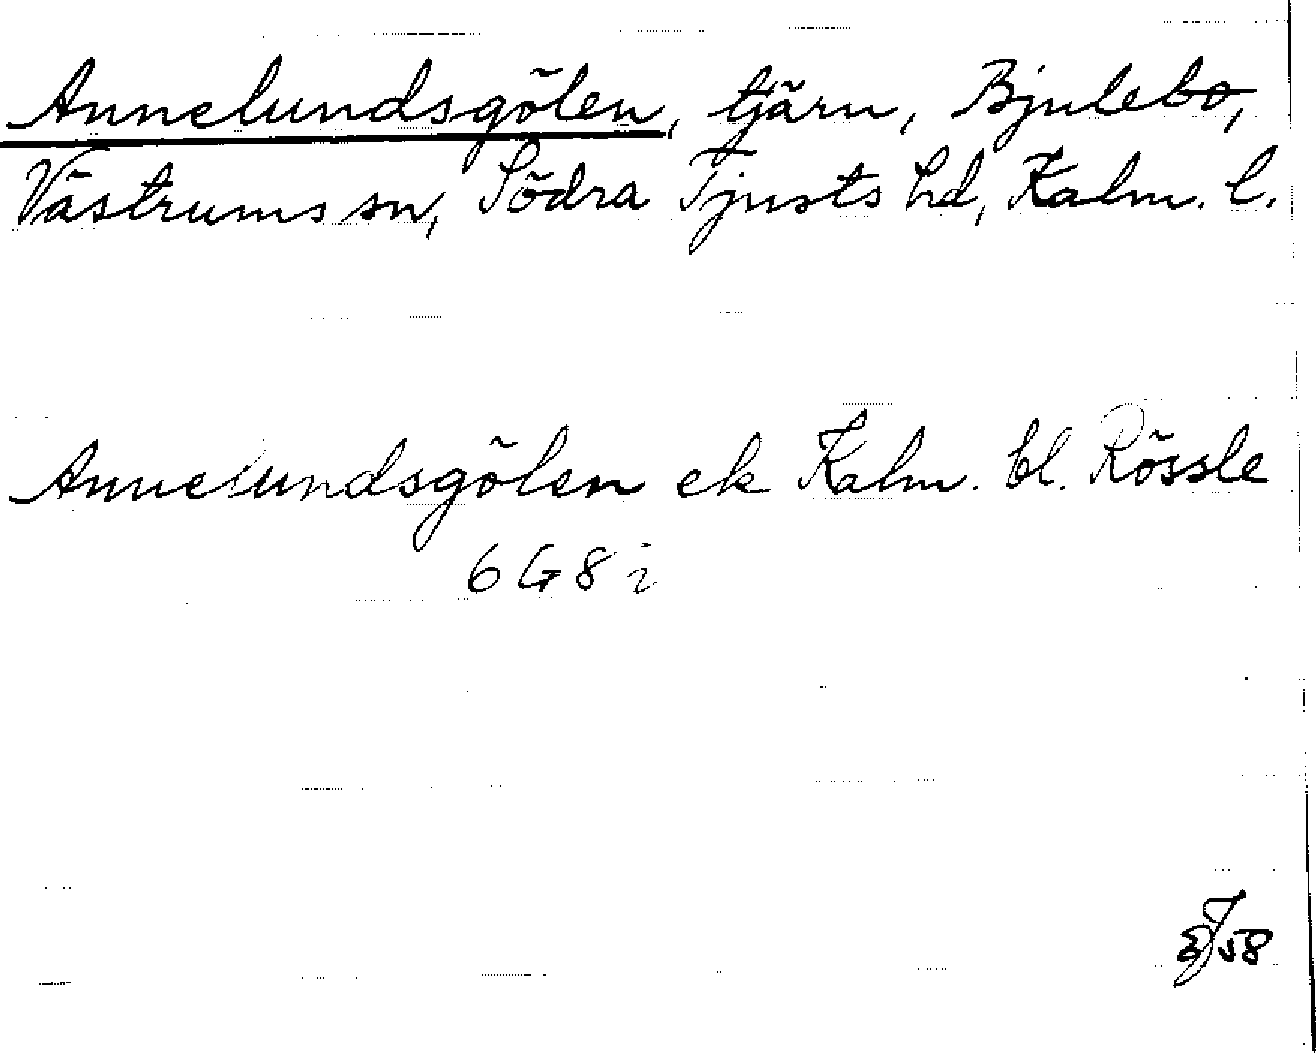 Annelundsgölen, tjärn, Bjulebo,
Västrums sn, Södra Tjusts hd, Kalm. l.
Annelundsgölen ek Kalm. bl. Rössle
6 G 8 i
58